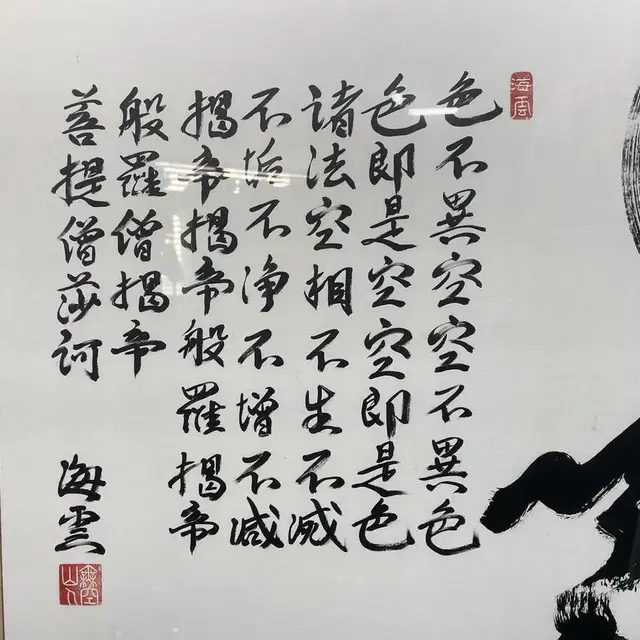 海雲
色不異空空不異色
色即是空空即是色
諸法空相不生不滅
不垢不淨不增不減
揭帝揭帝般羅揭帝
般羅僧揭帝
菩提僧莎訶
海雲